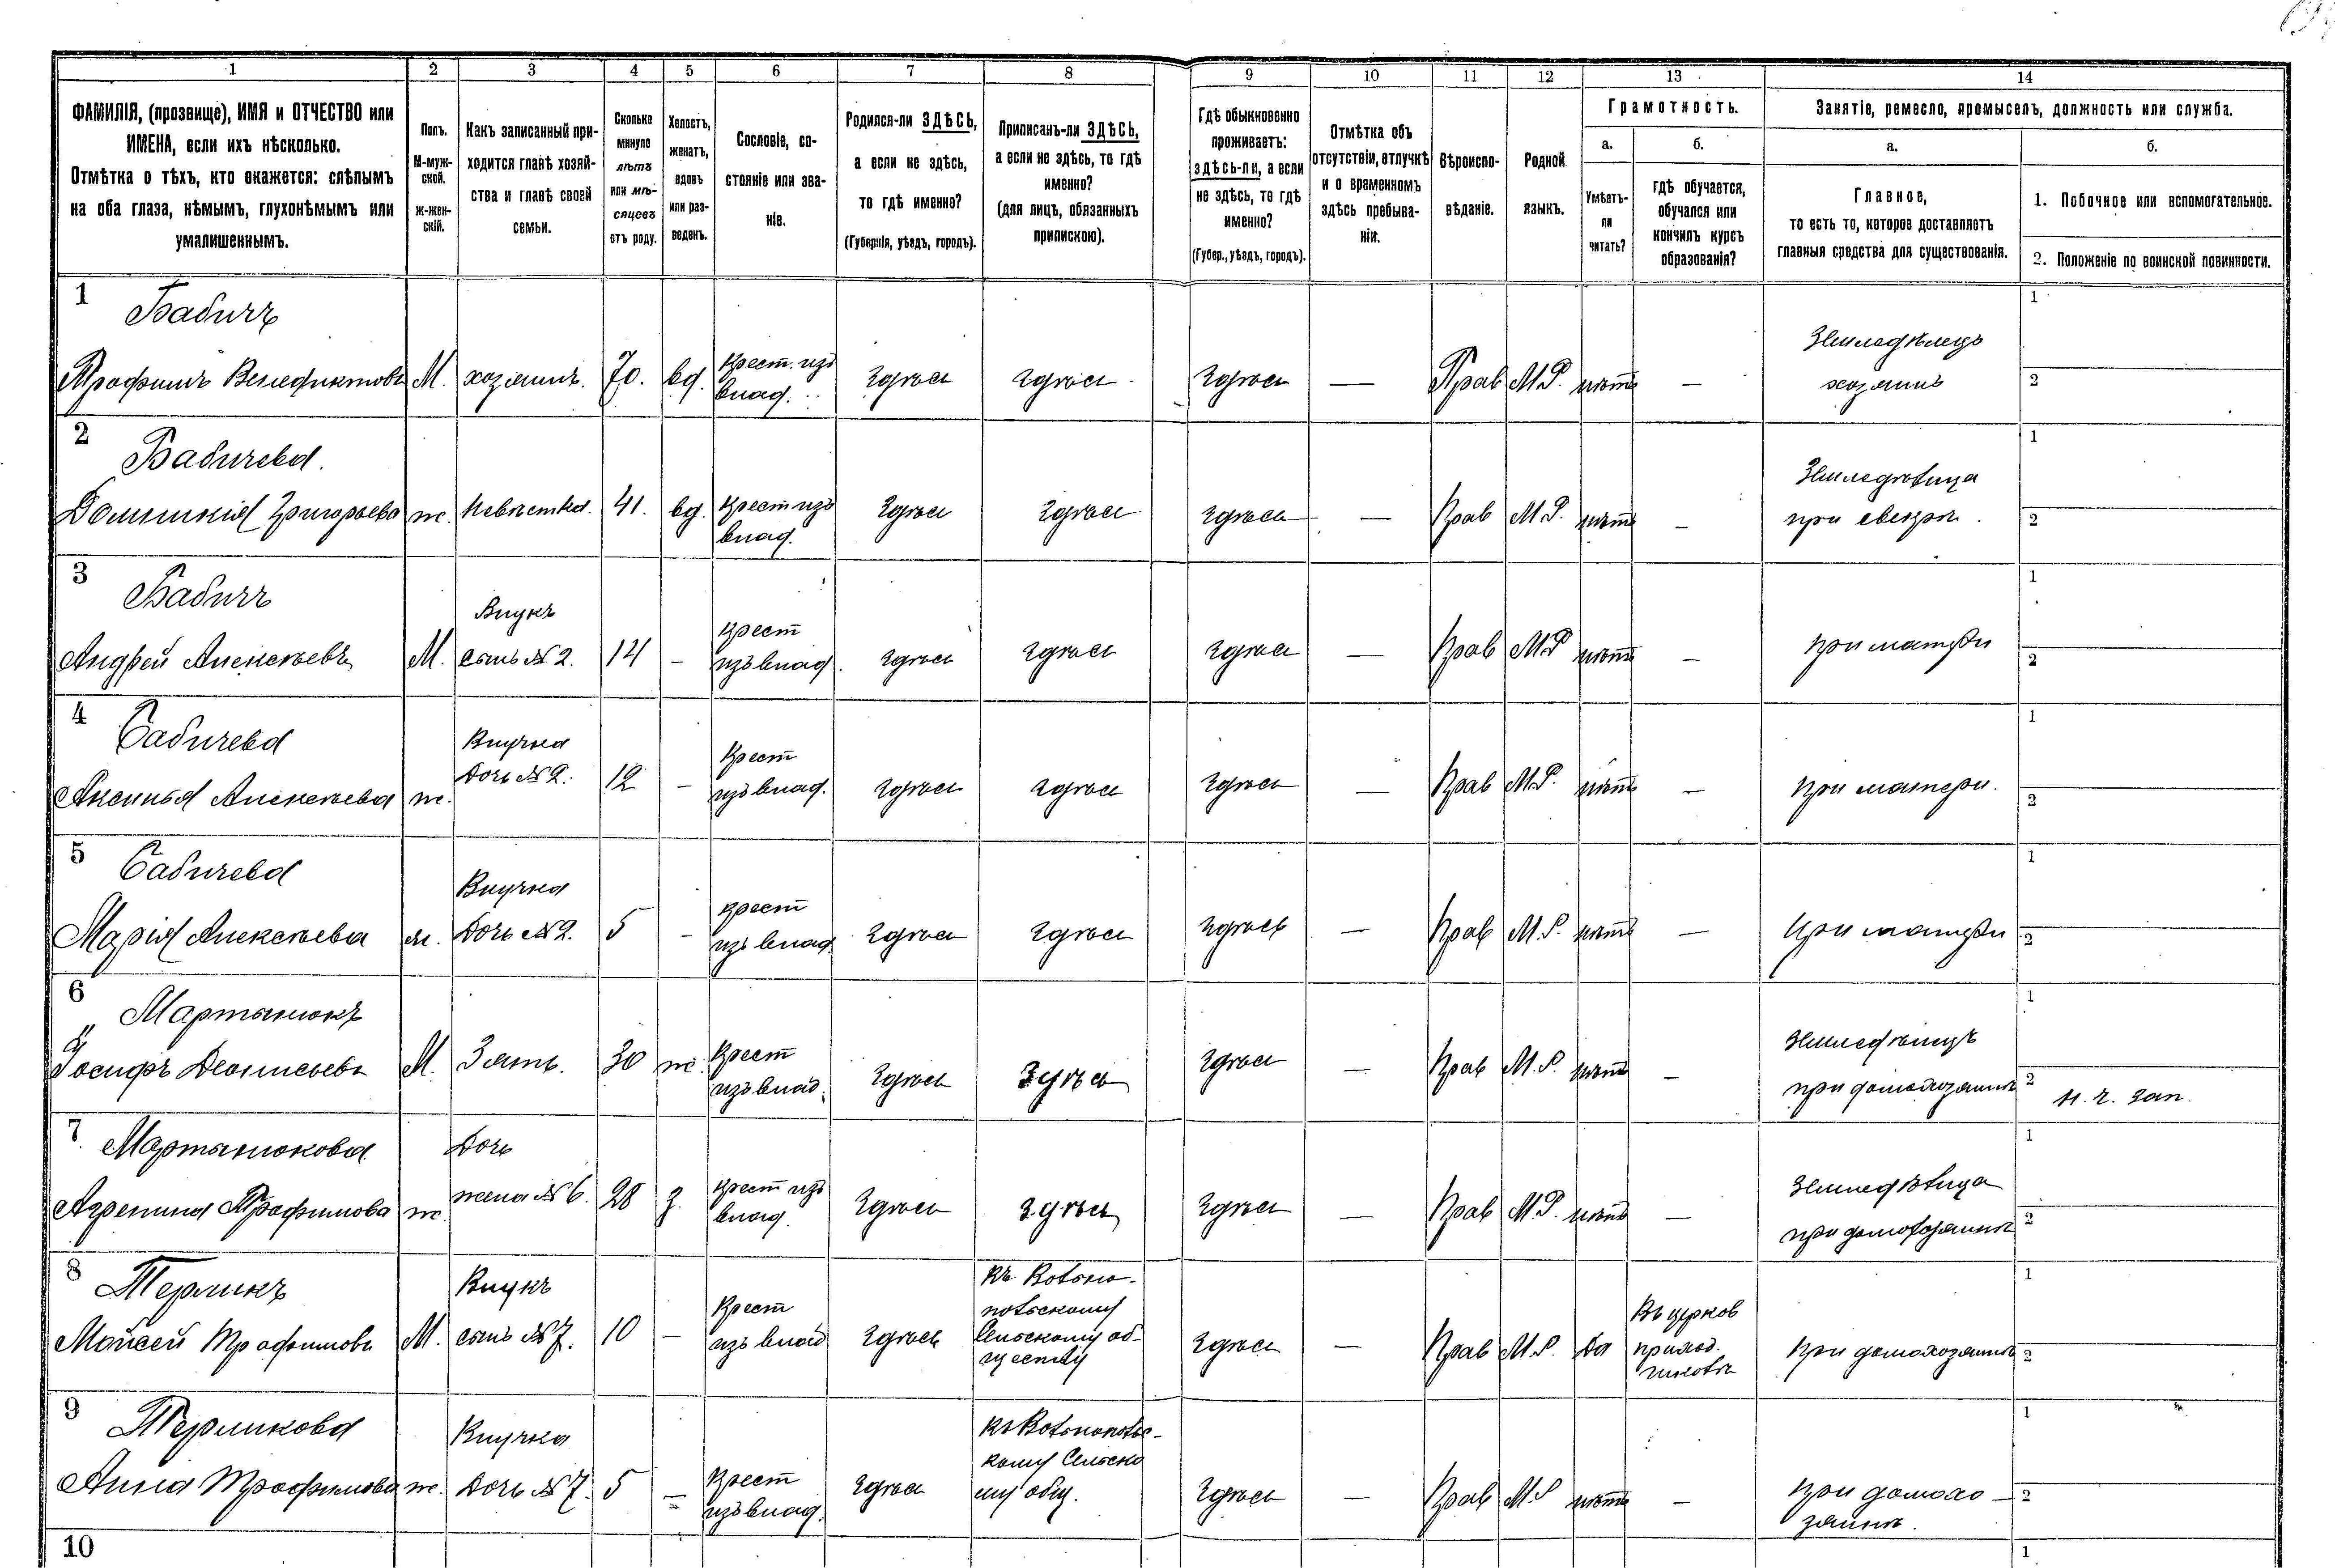 1 2 3 4 5 6 7 8 9 10 11 12 13 14
ФАМИЛІЯ, (прозвище), ИМЯ и ОТЧЕСТВО или
ИМЕНА, если ихъ нѣсколько.
Отмѣтка о тѣхъ, кто окажется: слѣпымъ
на оба глаза, нѣмымъ, глухонѣмымъ или
умалишеннымъ.
Полъ.
М-муж-
ской.
Ж-жен-
скій.
Какъ записанный при-
ходится главѣ хозяй-
ства и главѣ своей
семьи.
Сколько
минуло
лѣтъ
или мѣ-
сяцевъ
отъ роду.
Холостъ,
женатъ,
вдовъ
или раз-
веденъ.
Сословіе, со-
стояніе или зва-
ніе.
Родился-ли ЗДѢСЬ,
а если не здѣсь,
то гдѣ именно?
(Губернія, уѣздъ, городъ).
Приписанъ-ли ЗДѢСЬ,
а если не здѣсь, то гдѣ
именно?
(для лицъ, обязанныхъ
припискою).
Гдѣ обыкновенно
проживаетъ:
здѣсь-ли, а если
не здѣсь, то гдѣ
именно?
(Губер., уѣздъ, городъ).
Отмѣтка объ
отсутствіи, отлучкѣ
и о временномъ
здѣсь пребыва-
ніи.
Вѣроиспо-
вѣданіе.
Родной
языкъ.
Грамотность.
а.
Умѣетъ-
ли
читать?
б.
гдѣ обучается,
обучался или
кончилъ курсъ
образованія?
Занятіе, ремесло, промыселъ, должность или служба.
а.
Главное,
то есть то, которое доставляетъ
главныя средства для существованія.
б.
1. Побочное или вспомогательное.
2. Положеніе по воинской повинности.
1
Бабичъ
Трофимъ Венедиктовъ М. хозяинъ. 70. вд. крест. изъ
влад. здѣсь здѣсь здѣсь — Прав М.Р. нѣтъ —
Земледѣлецъ
хозяинъ
1
2
2
Бабичева
Домникія Григорьева ж. Невѣстка. 41. вд. крест изъ
влад. здѣсь здѣсь здѣсь — Прав М.Р. нѣтъ —
при свекрѣ.
1
2
3
Бабичъ
Андрей Алексѣевъ М.
Внукъ
сынъ №2. 14 —
крест
изъ влад. здѣсь здѣсь здѣсь — Прав М.Р нѣтъ — при матери
1
2
4
Бабичева
Аксинья Алексѣева ж.
Внучка
Дочь №2. 12 —
Крест
изъ влад. здѣсь здѣсь здѣсь — Прав М.Р. нѣтъ — при матери.
1
2
5
Бабичева
Марія Алексѣева ж.
Внучка
Дочь №2. 5 —
крест
изъ влад. здѣсь здѣсь здѣсь — Прав М.Р. нѣтъ — При матери
1
2
6
Мартынюкъ
Іосифъ М. Зять. 30 ж. Крест
изъ влад. здѣсь здѣсь здѣсь — Прав М.Р. нѣтъ —
при домохозяинѣ
1
2 н. ч. зап.
7
Мартынюкова
Агрепина Трофимова ж.
Дочь
жена №6. 28 з. крест изъ
влад. здѣсь здѣсь здѣсь — Прав М.Р. нѣтъ —
при домохозяинѣ
1
2
8
Терликъ
Мойсей Трофимовъ М.
Внукъ
сынъ №7. 10 —
Крест
изъ влад здѣсь
Сельскому об-
ществу
здѣсь — Прав М.Р. да
Въ церков
приход.
при домохозяинѣ
1
2
9
Терликова
Анна Трофимова ж.
Внучка
Дочь №7. 5 —
Крест
изъ влад. здѣсь
кому Сельско
му общ.
здѣсь — Прав М.Р нѣтъ —
при домохо-
зяинѣ.
1
2
10
1